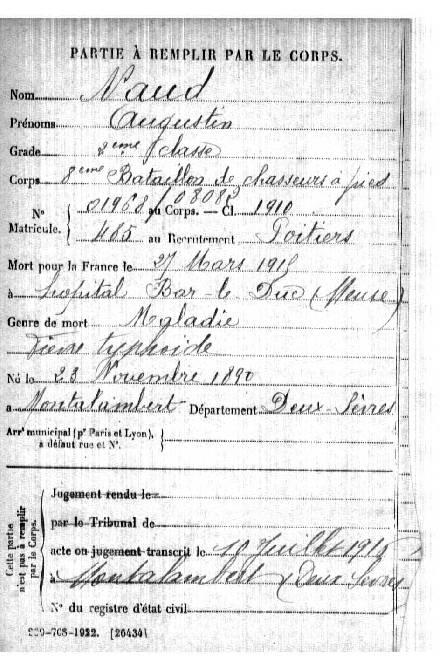 PARTIE À REMPLIR PAR LE CORPS.
Nom Naud
Prénoms Augustin
Grade 2eme classe
Corps 8eme Bataillon de chasseurs à pied
N° Matricule. 01968 / 08082 au Corps. — Cl. 1910
485 au Recrutement Poitiers
Mort pour la France le 27 Mars 1915
à hopital Bar-le Duc (Meuse)
Genre de mort Maladie
Fièvre typhoïde
Né le 23 Novembre 1890
a Montalembert Département Deux-Sèvres
Arrt municipal (pr Paris et Lyon),
à défaut rue et N°.
Cette partie n'est pas à remplir par le Corps.
Jugement rendu le
par le Tribunal de
acte ou jugement transcrit le 10 Juillet 1915
à Montalambert (Deux Sèvres)
N° du registre d'état civil
-708-1922. [26434]